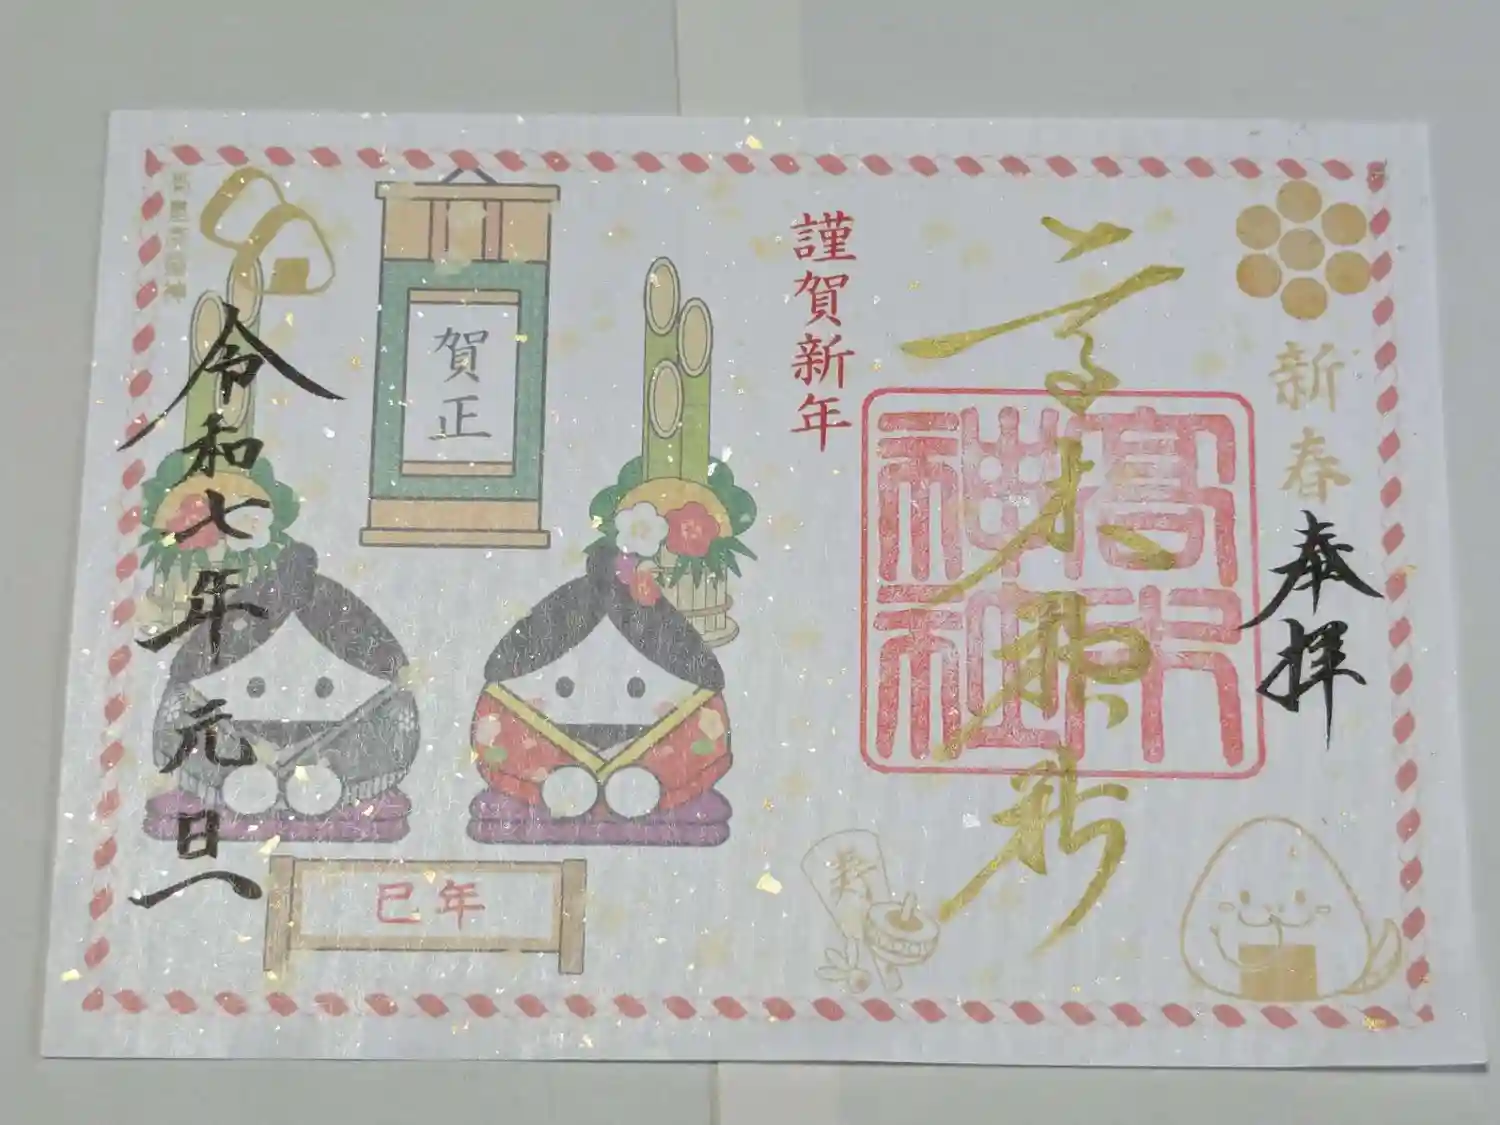 新春
奉拝
高木神社
高木
神社
謹賀新年
賀正
巳年
令和七年元日